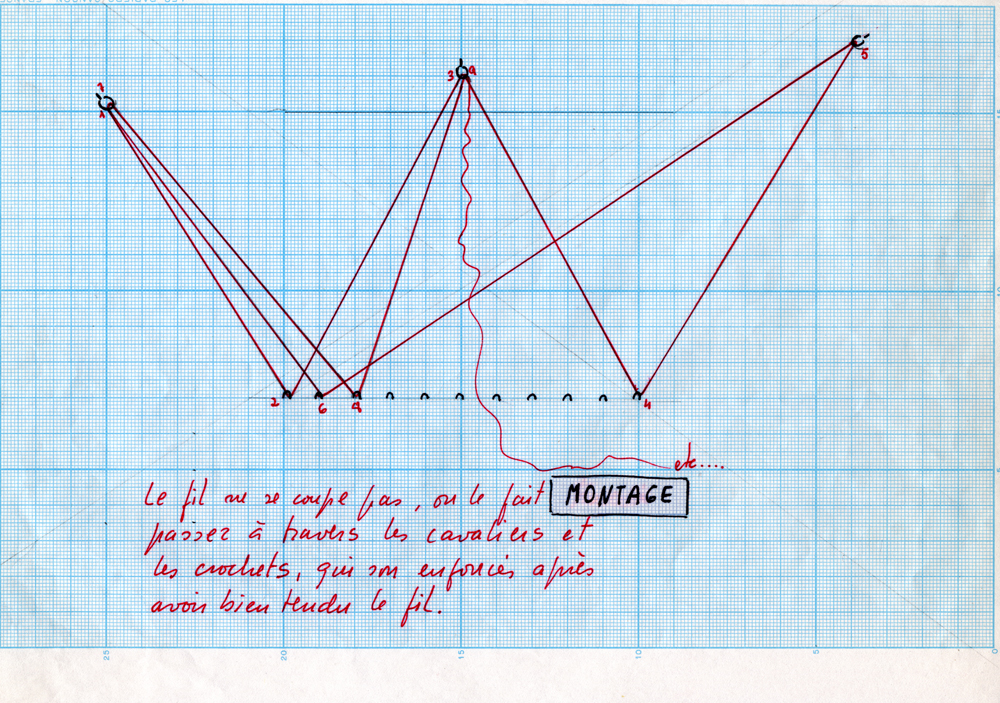 1
1
3 9
5
15
10
2
6
8
4
etc....
5
MONTAGE
Le fil ne se coupe pas, on le fait
passer à travers les cavaliers et
les crochets, qui son enfoncés après
avoir bien tendu le fil.
25
20
15
10
5
0